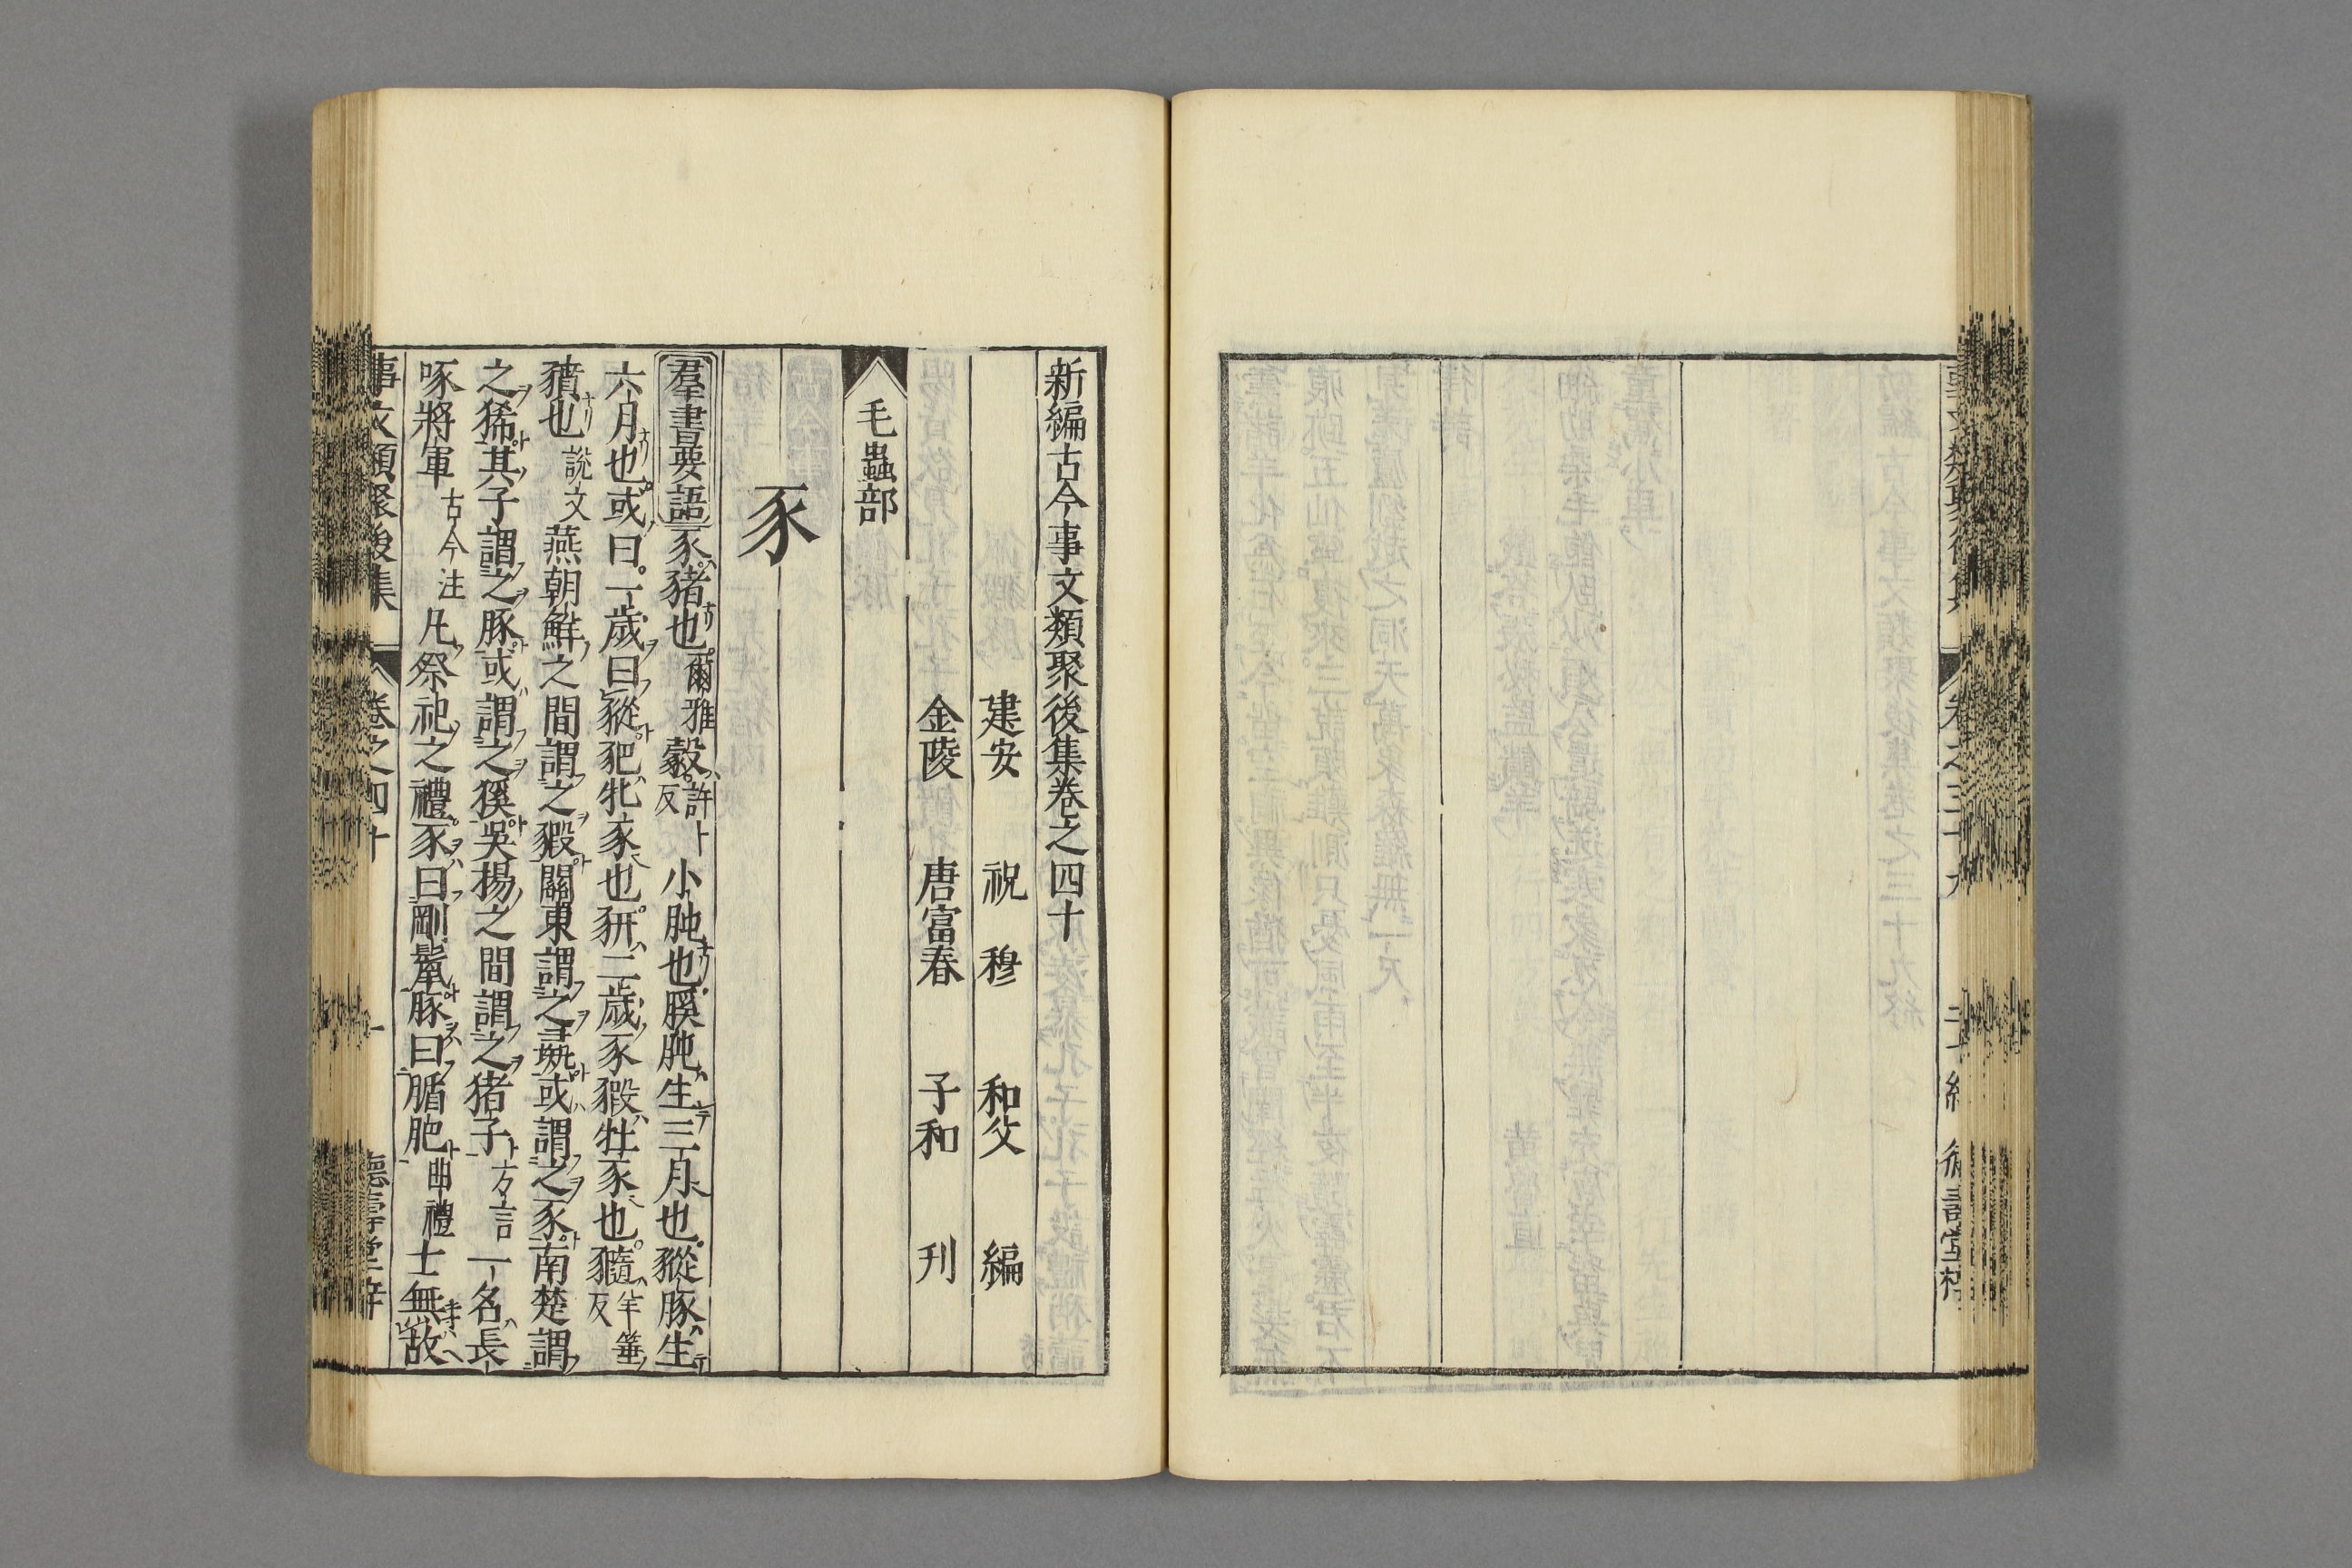 新編古今事文類聚後集卷之四十
建安　祝　穆　和父　編
金陵　唐富春　子和　刋
毛蟲部
豕
羣書要語豕猪也爾雅豰許卜反小㹠也豯㹠生三月也豵豚生
六月也或曰一歲曰豵豝牝豕也豜二歲豕豭牡豕也䝐羊箠反
豶也說文燕朝鮮之間謂之豭關東謂之彘或謂之豕南楚謂
之豨其子謂之豚或謂之豯吳揚之間謂之猪子方言一名長
喙將軍古今注凡祭祀之禮豕曰剛鬣豚曰腯肥曲禮士無故
事文類聚後集　卷之四十　一　德壽堂梓